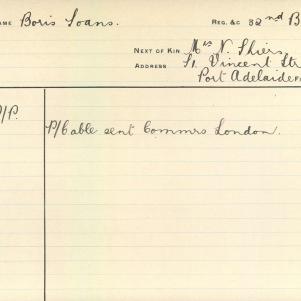 AME Boris Soans. REG. &C 32nd B
NEXT OF KIN Mrs N. Shiers,
ADDRESS St. Vincent Str
Port Adelaide
/P. P/Cable sent Commrs London.